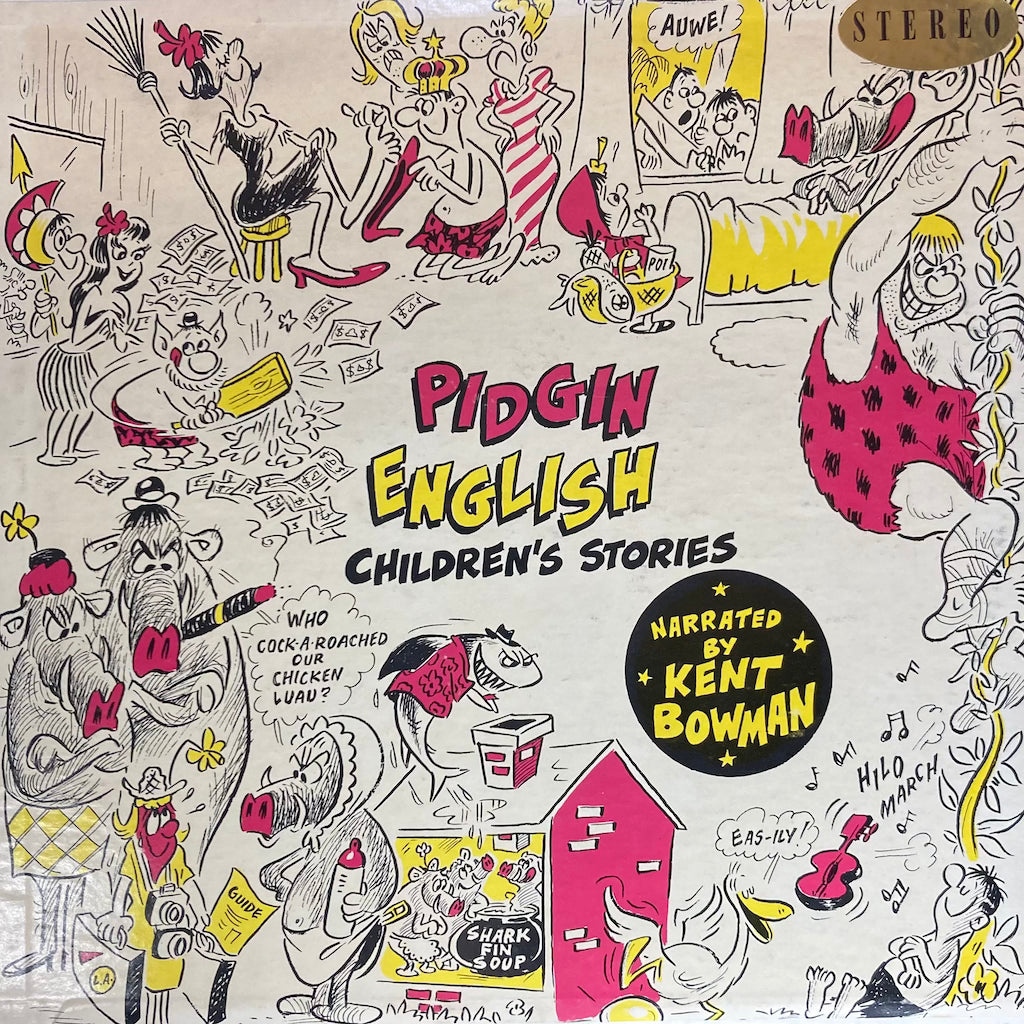 STEREO
AUWE!
POI
PIDGIN
ENGLISH
CHILDREN'S STORIES
NARRATED
BY
KENT
BOWMAN
WHO
COCK-A-ROACHED
OUR
CHICKEN
LUAU?
HILO
MARCH
EAS-ILY!
GUIDE
SHARK
FIN
SOUP
L.A.